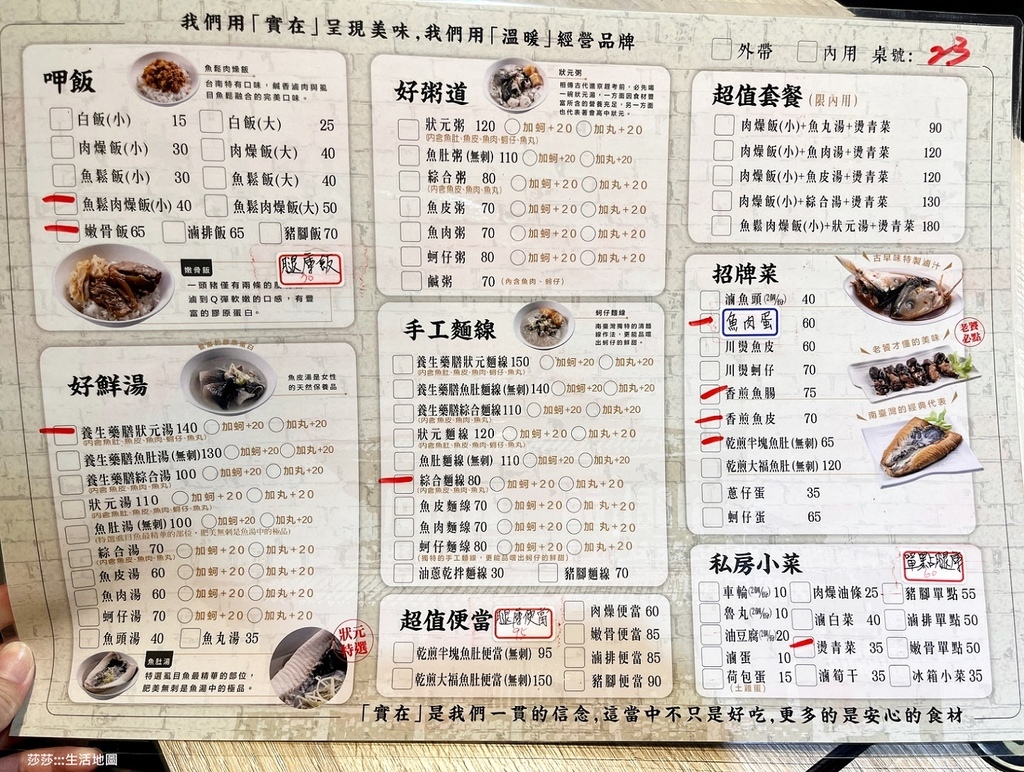 我們用「實在」呈現美味,我們用「溫暖」經營品牌
外帶 內用 桌號: 23
呷飯
魚鬆肉燥飯
台南特有口味，鹹香滷肉與虱
目魚鬆融合的完美口味。
白飯(小) 15 白飯(大) 25
肉燥飯(小) 30 肉燥飯(大) 40
魚鬆飯(小) 30 魚鬆飯(大) 40
魚鬆肉燥飯(小) 40 魚鬆肉燥飯(大) 50
嫩骨飯 65 滷排飯 65 豬腳飯 70
嫩骨飯
腿庫飯
70
一頭豬僅有兩條的
滷到Q彈軟嫩的口感，有豐
富的膠原蛋白。
好鮮湯
魚皮湯是女性
的天然保養品
養生藥膳狀元湯 140 加蚵+20 加丸+20
(內含魚肚、魚皮、魚肉、蚵仔、魚丸)
養生藥膳魚肚湯(無刺) 130 加蚵+20 加丸+20
養生藥膳綜合湯 100 加蚵+20 加丸+20
(內含魚皮、魚肉、魚丸)
狀元湯 110 加蚵+20 加丸+20
(內含魚肚、魚皮、魚肉、蚵仔、魚丸)
魚肚湯(無刺) 100 加蚵+20 加丸+20
(特選虱目魚最精華的部位，肥美無刺是魚湯中的極品)
綜合湯 70 加蚵+20 加丸+20
(內含魚皮、魚肉、魚丸)
魚皮湯 60 加蚵+20 加丸+20
魚肉湯 60 加蚵+20 加丸+20
蚵仔湯 70 加蚵+20 加丸+20
魚頭湯 40 魚丸湯 35
狀元
特選
魚肚湯
特選虱目魚最精華的部位，
肥美無刺是魚湯中的極品。
好粥道
狀元粥
相傳古代進京趕考前，必先喝
一碗狀元湯，一方面因食材豐
富所含的營養充足，另一方面
也代表著會高中狀元。
狀元粥 120 加蚵+20 加丸+20
(內含魚肚、魚皮、魚肉、蚵仔、魚丸)
魚肚粥(無刺) 110 加蚵+20 加丸+20
綜合粥 80 加蚵+20 加丸+20
(內含魚皮、魚肉、魚丸)
魚皮粥 70 加蚵+20 加丸+20
魚肉粥 70 加蚵+20 加丸+20
蚵仔粥 80 加蚵+20 加丸+20
鹹粥 70 (內含魚肉、蚵仔)
手工麵線
蚵仔麵線
南臺灣獨特的清麵
線作法，更能品嚐
出蚵仔的鮮甜。
養生藥膳狀元麵線 150 加蚵+20 加丸+20
(內含魚肚、魚皮、魚肉、蚵仔、魚丸)
養生藥膳魚肚麵線(無刺) 140 加蚵+20 加丸+20
養生藥膳綜合麵線 110 加蚵+20 加丸+20
(內含魚皮、魚肉、魚丸)
狀元麵線 120 加蚵+20 加丸+20
(內含魚肚、魚皮、魚肉、蚵仔、魚丸)
魚肚麵線(無刺) 110 加蚵+20 加丸+20
綜合麵線 80 加蚵+20 加丸+20
(內含魚皮、魚肉、魚丸)
魚皮麵線 70 加蚵+20 加丸+20
魚肉麵線 70 加蚵+20 加丸+20
蚵仔麵線 80 加蚵+20 加丸+20
(獨特的手工麵線，更能品嚐出蚵仔的鮮甜)
油蔥乾拌麵線 30 豬腳麵線 70
超值便當
腿庫便當
95
乾煎半塊魚肚便當(無刺) 95
乾煎大福魚肚便當(無刺) 150
肉燥便當 60
嫩骨便當 85
滷排便當 85
豬腳便當 90
超值套餐(限內用)
肉燥飯(小)+魚丸湯+燙青菜 90
肉燥飯(小)+魚肉湯+燙青菜 120
肉燥飯(小)+魚皮湯+燙青菜 120
肉燥飯(小)+綜合湯+燙青菜 130
魚鬆肉燥飯(小)+狀元湯+燙青菜 180
招牌菜
古早味特製滷汁
滷魚頭(2個/份) 40
魚肉蛋 60
川燙魚皮 60
川燙蚵仔 70
香煎魚腸 75
香煎魚皮 70
乾煎半塊魚肚(無刺) 65
乾煎大福魚肚(無刺) 120
蔥仔蛋 35
蚵仔蛋 65
老饕
必點
老饕才懂的美味
南臺灣的經典代表
私房小菜
單點腿庫
60
車輪(2個/份) 10 肉燥油條 25 豬腳單點 55
魯丸(2個/份) 10 滷白菜 40 滷排單點 50
油豆腐(2個/份) 20 燙青菜 35 嫩骨單點 50
滷蛋 10 滷筍干 35 冰箱小菜 35
荷包蛋 15
(土雞蛋)
「實在」是我們一貫的信念,這當中不只是好吃,更多的是安心的食材
莎莎:::生活地圖